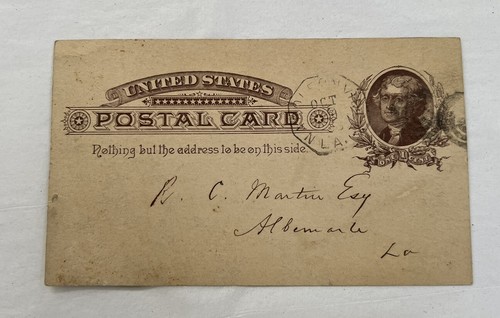 UNITED STATES
POSTAL CARD
Nothing but the address to be on this side.
OCT
LA.
B. C. Martin Esq
Albemarle
La